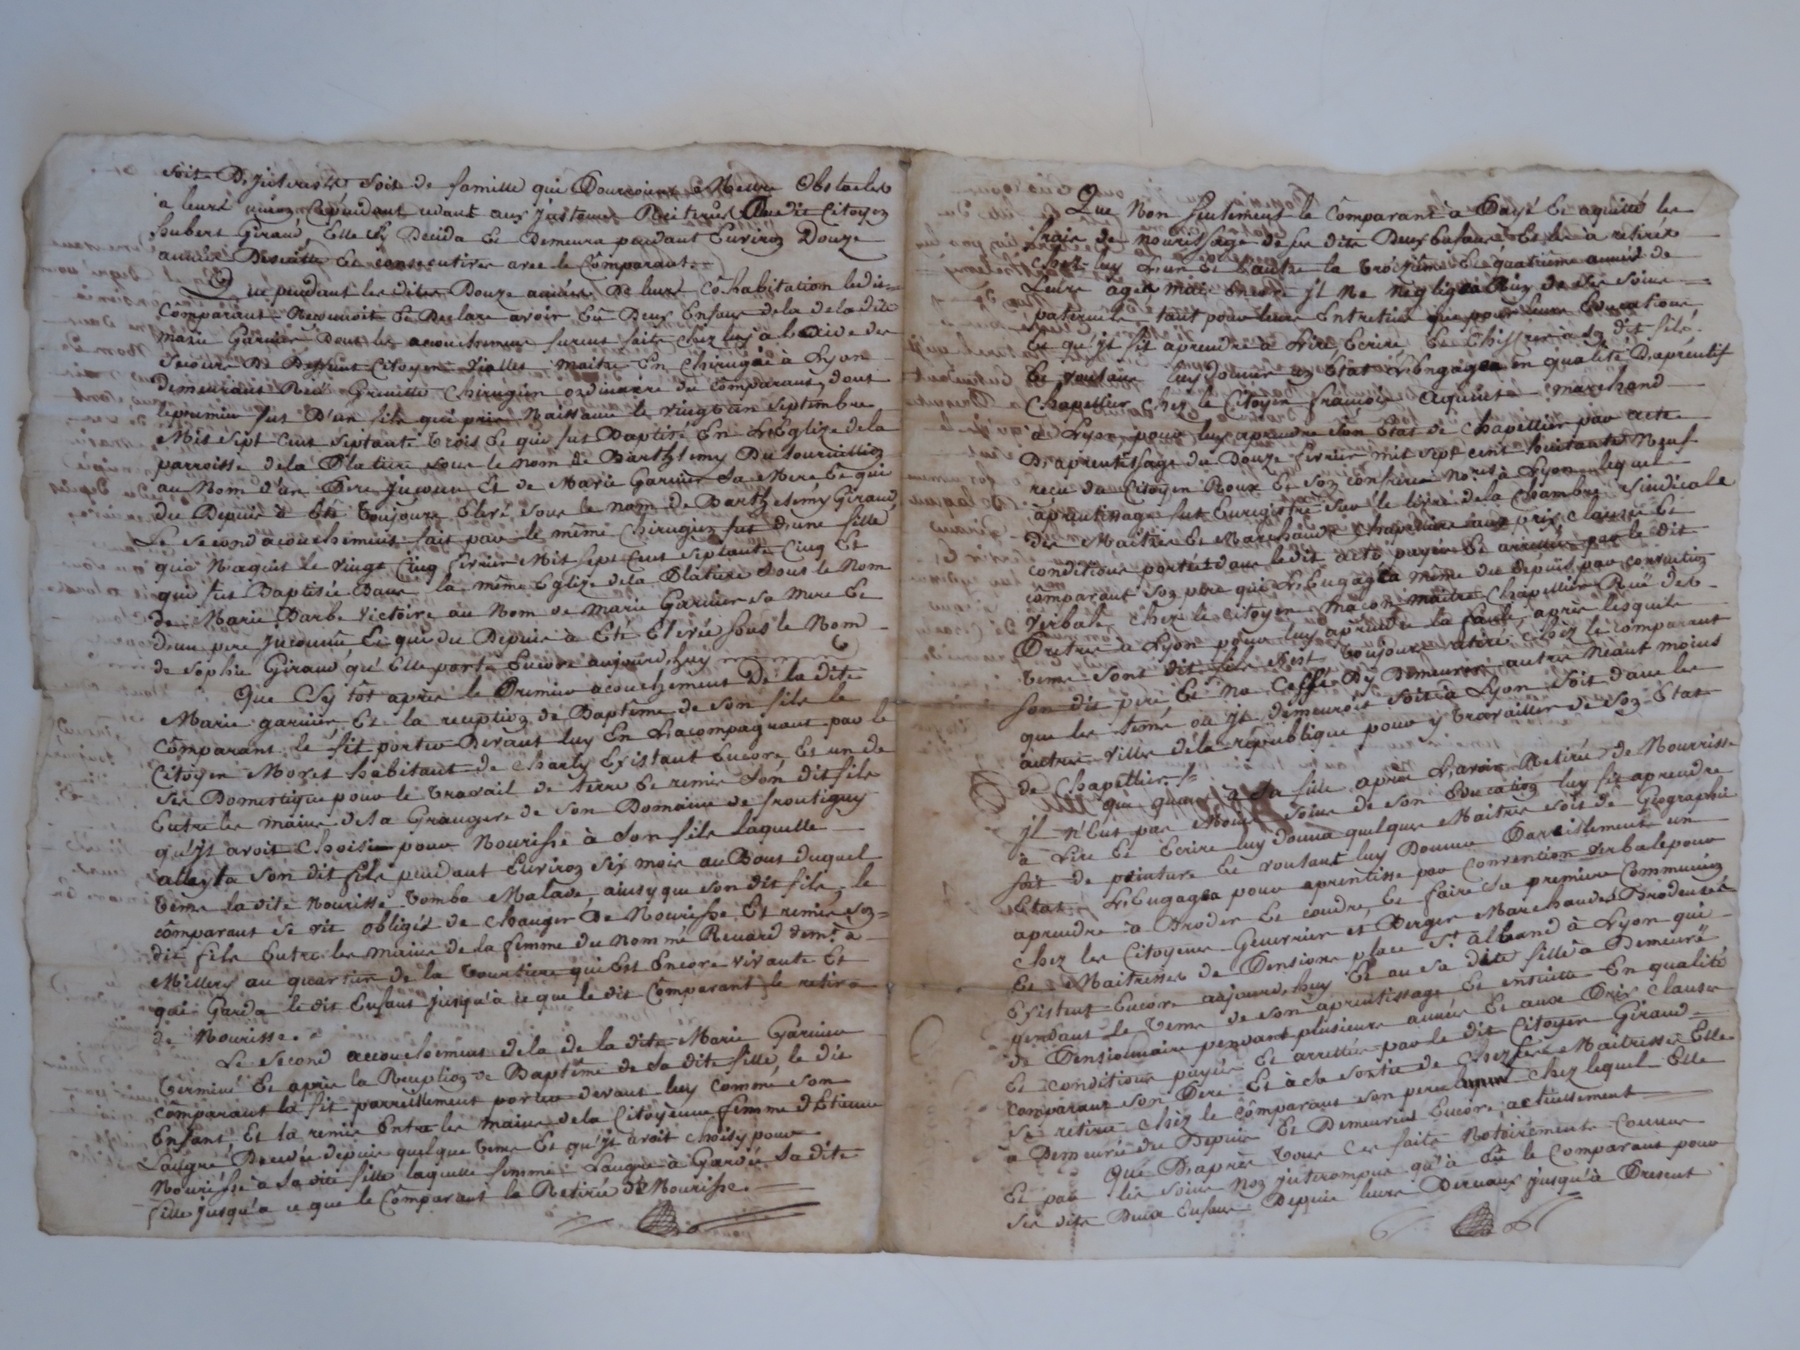 soit D'jnterest soit de famille qui Pourroient à Mettre Obstacles
à leurs cependant cédant aux jnstances Réiterées Du dit Citoyen
hubert Giraud, Elle s'y Décida Et Demeura pendant Environ Douze
années De suitte Et consecutives avec le Comparant.
Que pendant les dites Douze années De leurs Cohabitation le dit
Comparant Reconnoit Et Declare avoir Eû Deux Enfans de la de la dite
Marie Garnier Dont les acouchemens furent faits chez luy à L'aide des
secours De Deffunt Citoyen Vialles Maitre En Chirugie à Lyon
Demeurant Rue Grenette Chirugien ordinaire du Comparant, dont
le premier fut D'un fils qui prit Naissance le vingt un septembre
Mil sept Cent septante trois Et qui fut Baptisé En L'Eglize de la
parroisse de la Platiere sous le Nom de Barthelemy Du
au Nom d'un Pere jnconnu Et de Marie Garnier sa Mere Et qui
du Depuis à Eté toujours Elevé sous le nom de Barthelemy Giraud,
Le second acouchement fait par le même Chirugien fut d'une fille
qui Naquit le vingt Cinq fevrier Mil sept Cent septante Cinq Et
qui fut Baptisée Dans la même Eglize de la Platiere sous le Nom
de Marie Barbe Victoire au Nom de Marie Garnier sa Mere Et
d'un pere jnconnu, Et qui du Depuis à Eté Elevée sous le Nom
de Sophie Giraud qu'Elle porte Encore aujourd'huy
Que sy tôt après le Premier acouchement De la dite
Marie garnier Et la reception de Baptême de son fils le
Comparant le fit porter Devant luy En L'acompagnant par le
Citoyen Moret habitant de Charly Existant Encore, Et un de
ses Domestiques pour le travail de terre Et remis son dit fils
Entre les mains de la Grangere de son Domaine de frontigny
qu'jl avoit Choisi pour Nourisse à son fils laquelle
allayta son dit fils pendant Environ six mois au Bout duquel
tems la dite Nourisse tomba Malade, ainsy que son dit fils, le
comparant se vit obligés de Changer De Nourisse Et remis son
dit fils Entre les mains de la femme du Nommé Renard demt. à
Millery au quartier de la tourtiere qui Est Encore vivante Et
qui Garda le dit Enfant jusqu'à ce que le dit Comparant le retira
de Nourisse.
Le second accouchement de la de la dite Marie Garnier
terminé Et après la Reception de Baptême de sa dite fille, le dit
Comparant la fit parreillement porter devant luy comme son
Enfant, Et la remis Entre les mains de la Citoyenne femme d'Etienne
Laugre Décédée depuis quelque tems Et qu'jl avoit choisy pour
Nourisse à sa dite fille laquelle femme Laugre à Gardée sa dite
fille jusqu'à ce que le Comparant la Retirée de Nourisse.
Que Non seulement le Comparant à Payé Et aquitté les
frais de Nourissage de ses dits Deux Enfans Et les à retirer
chez luy L'un Et L'autre la troisieme Et quatrieme année de
Leurs âges, mais Encore jl Ne negligea Rien de ses soins
paternels tant pour leurs Entretien que pour leurs Education
Et qu'jl fit aprendre à Lire Ecrire Et Chiffrer à son dit fils.
Et voulant luy donner un Etat L'Engagea En qualité D'aprentif
Chapellier chez le Citoyen françois marchand
à Lyon pour luy aprendre son Etat de Chapellier par acte
D'aprentissage du Douze fevrier mil sept cent huitante Neuf
reçu du Citoyen Roux Et son confrere Nores. à Lyon lequel
aprentissage fut Enregistré sur le livre de la Chambre sindicale
des Maitres Et Marchands Chapelliers aux prix clauses Et
conditions portées dans le dit acte payés Et arrettés par le dit
comparant son pere qui L'Engagea même du depuis par convention
verbale chez le Citoyen Macon maitre Chapellier Ruë des
Pretres à Lyon pour luy aprendre la foule, après lesquels
tems sont dit fils s'est toujours retiré chez le comparant
son dit pere, Et na Cessé D'y Demeurer autres Néant moins
que les tems où jl demeuroit soit à Lyon soit dans les
autres villes de la république pour y travailler de son Etat
de Chapellier.
Que quand à sa fille après L'avoir Retirée de Nourrisse
jl n'Eut pas Moins soins de son Education luy fit aprendre
à Lire Et Ecrire luy donna quelques Maitres soit de Géographie
soit de peinture Et voulant luy Donner Pareillement un
Etat L'Engagea pour aprentisse par Convention verbale pour
aprendre à Broder Et coudre, Et faire sa premiere Communion
chez les Citoyens Guerrier et Berger Marchandes Brodeuses
Et Maitresses de Pensions place St. Alband à Lyon qui
Existent Encore aujourd'huy Et où sa dite fille à Demeuré
pendant le tems de son aprentissage Et ensuitte En qualité
de Pensionnaire pendant plusieurs année Et aux Prix clauses
Et conditions payés Et arrettés par le dit Citoyen Giraud
comparant son Pere Et à la sortie de chez ses Maitresses Elle
se retira chez le Comparant son pere chez lequel Elle
à Demeurée du Depuis Et Demeure Encore actuellement
Que D'après tous ces faits Notoirements Connus
Et par les soins Non jnterompus qu'à Eû le Comparant pour
ses dits Deux Enfans Depuis leurs jusqu'à Present